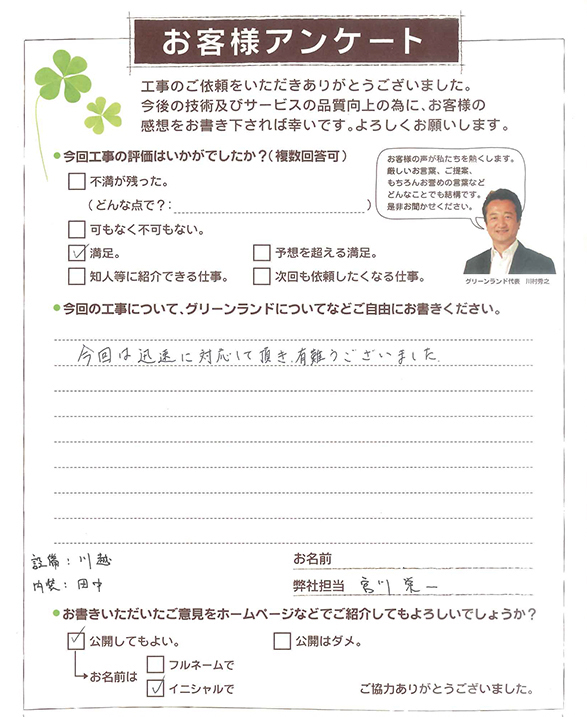 お客様アンケート
工事のご依頼をいただきありがとうございました。
今後の技術及びサービスの品質向上の為に、お客様の
感想をお書き下されば幸いです。よろしくお願いします。
今回工事の評価はいかがでしたか?(複数回答可)
お客様の声が私たちを熱くします。
厳しいお言葉、ご提案、
もちろんお誉めの言葉など
どんなことでも結構です。
是非お聞かせください。
グリーンランド代表 川村秀之
不満が残った。
(どんな点で?: )
可もなく不可もない。
満足。 予想を超える満足。
知人等に紹介できる仕事。 次回も依頼したくなる仕事。
今回の工事について、グリーンランドについてなどご自由にお書きください。
今回は迅速に対応して頂き、有難うございました。
設備:川越
内装:田中
お名前
弊社担当 宮川栄一
お書きいただいたご意見をホームページなどでご紹介してもよろしいでしょうか?
公開してもよい。 公開はダメ。
お名前は
フルネームで
イニシャルで
ご協力ありがとうございました。